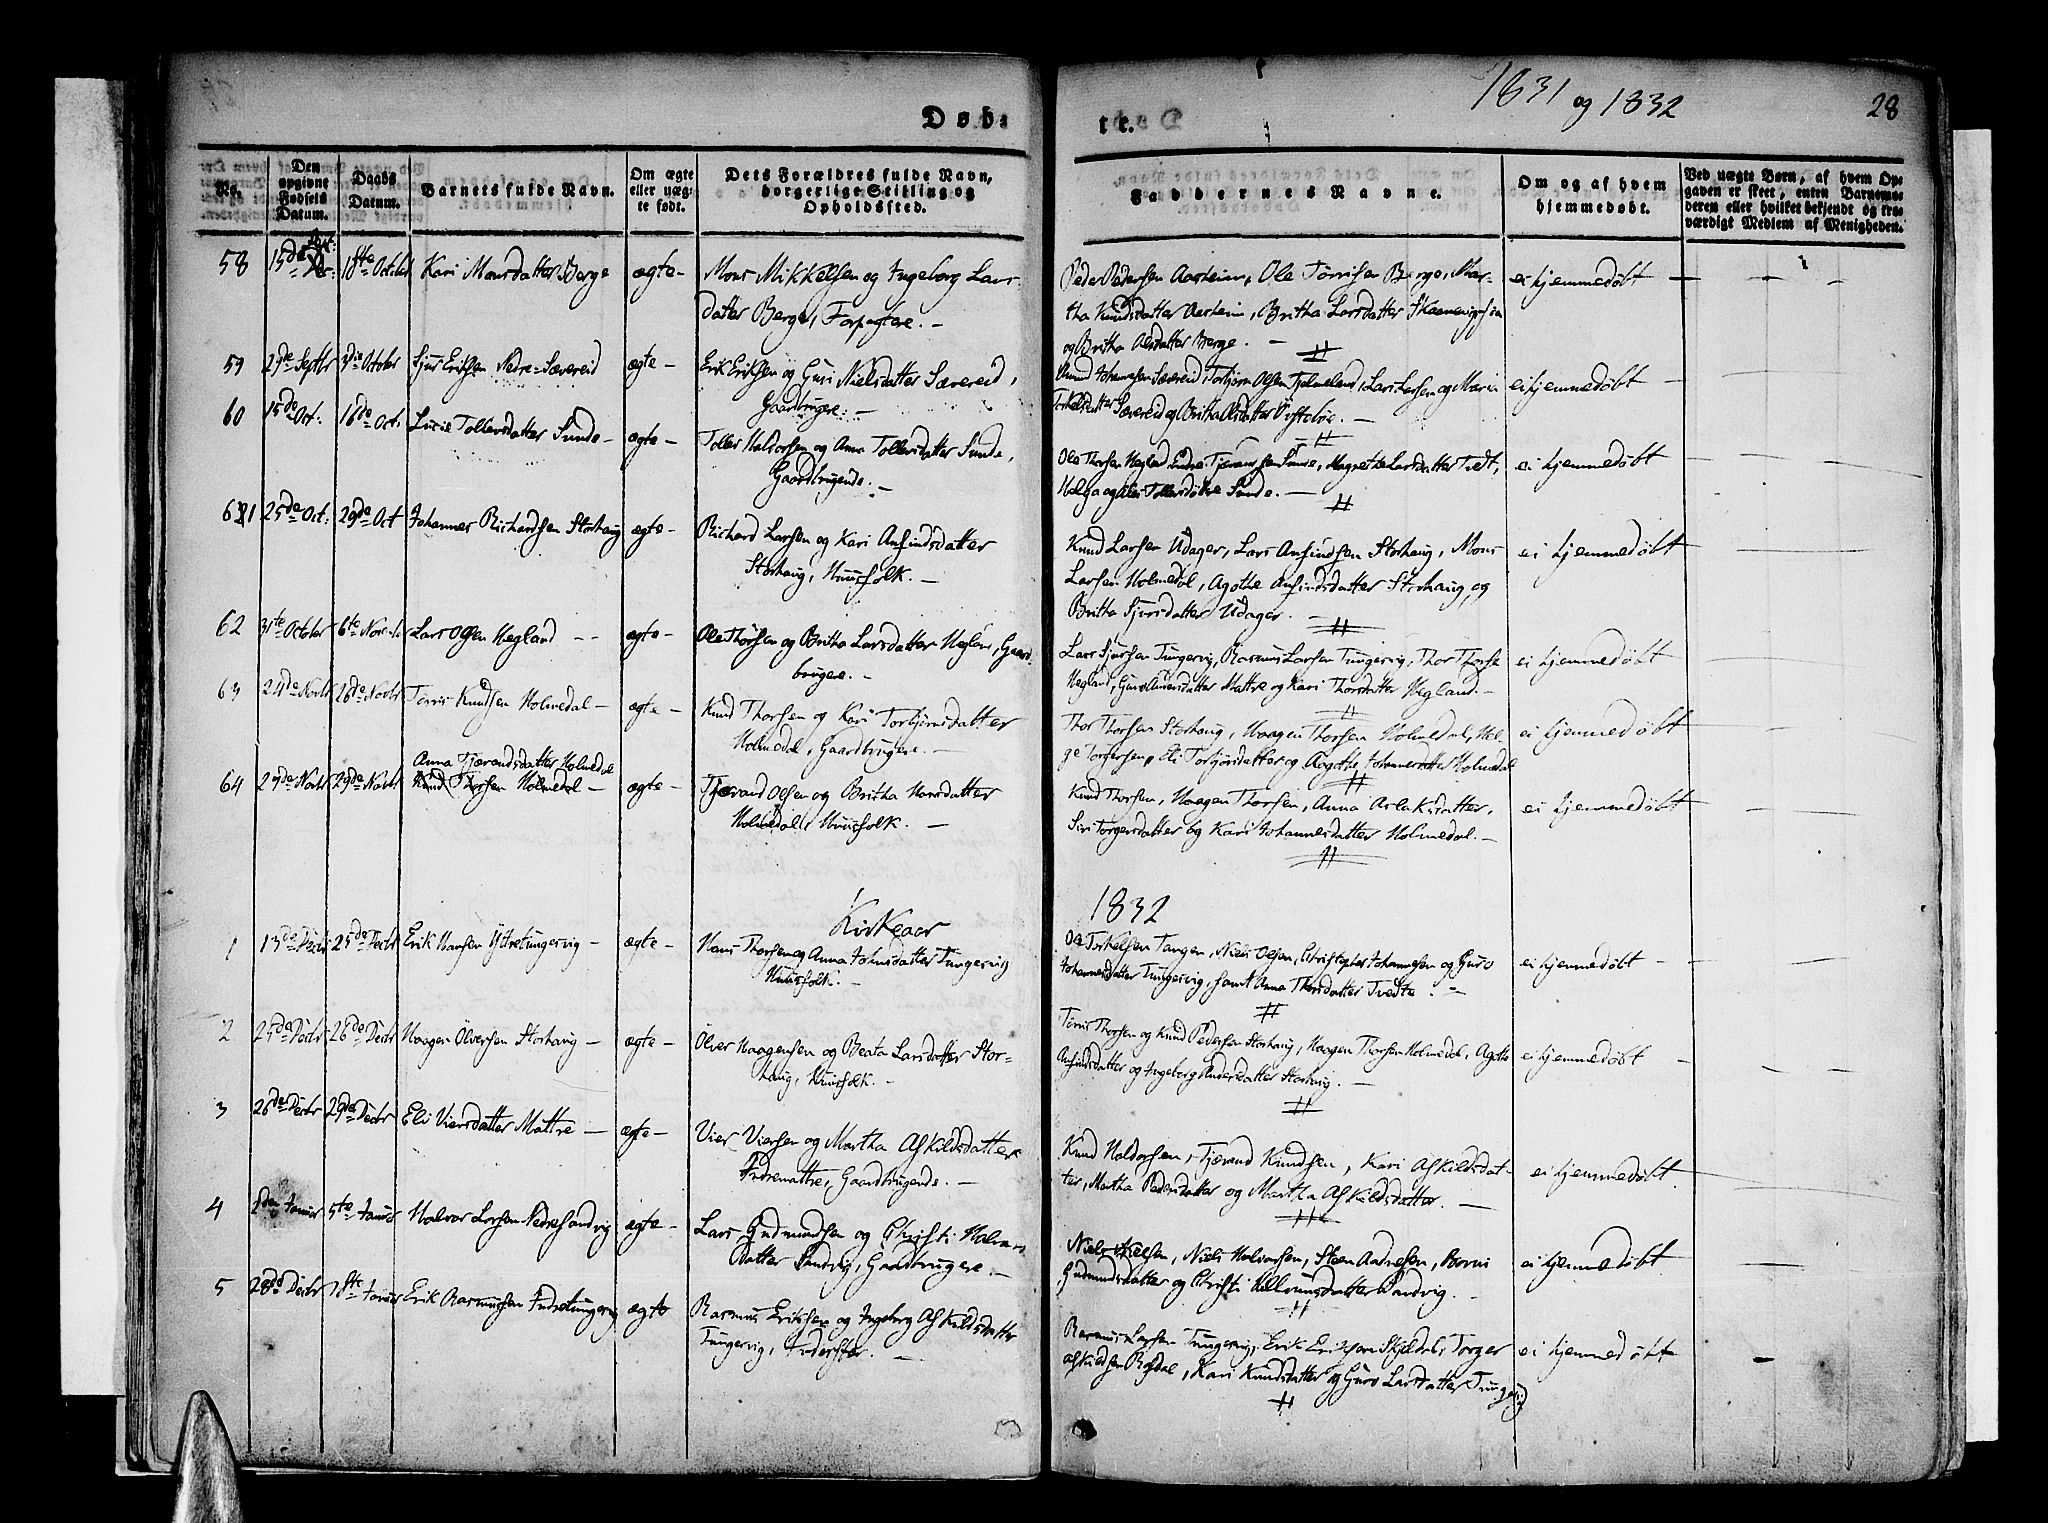 1831 og 1832
28
Døb=
te.
No.
Den
opgivne
Fødsels
Datum.
Daabs
Datum.
Barnets fulde Navn.
Om ægte
eller uæg-
te født.
Dets Forældres fulde Navn,
borgerlige Stilling og
Opholdssted.
Faddernes Navne.
Om og af hvem
hjemmedøbt.
Ved uægte Børn, af hvem Op-
gaven er skeet, enten Barnemo-
deren eller hvilket bekjendt og tro-
værdigt Medlem af Menigheden.
58 15de 18te Octob Kari Monsdatter Berge ægte- Mons Mikkelsen og Ingeborg Lars-
datter Berge, Forpagtere. -
Peder Pedersen Aarheim, Ole Tørrisen Berge, Mar-
tha Knudsdatter Aarheim, Britha Larsdatter
og Britha Olsdatter Berge. -
ei hjemmedøbt -
59 Septbr October Sjur Eriksen Nedre-Særereid ægte - Erik Eriksen og Guri Nielsdatter Særereid,
Gaardbrugere: -
Amund Johannesen Særereid, Torbjørn Olsen Fjelmeland, Lars Larsen og Maria
Torkelsdatter Særereid og Britha Olsdatter
ei hjemmedøbt
60 15de Oct: 16de Oct: Lucie Tollevsdatter Sunde - ægte - Tollev Haldorsen og Anna Tollevsdatter Sunde,
Gaardbrugende. -
Ole Thorsen Hegland, Endre Tjærandsen Sunde, Magrethe Larsdatter Tvedt,
Helga og Eli Tollevsdøttre Sunde. -
ei hjemmedøbt
61 25de Oct: 29de Oct Johannes Richardsen Storhaug ægte - Richard Larsen og Kari Anfindsdatter
Storhaug, Huusfolk. -
Knud Larsen Udager, Lars Anfindsen Storhaug, Mons
Larsen Holmedal, Agathe Anfindsdatter Storhaug, og
Britha Sjursdatter Udager. -
ei hjemmedøbt
62 31te October 6te Lars Olsen Hegland - - ægte - Ole Thorsen og Britha Larsdatter Hegland, Gaard-
brugere. -
Lars Sjursen Tungesvig, Rasmus Larsen Tungesvig, Thor Thorsen
Hegland, Guro Aamersdatter Mattre og Kari Thorsdatter Hegland. -
ei hjemmedøbt
63 24de Novbr 26de Novbr Tørris Knudsen Holmedal - ægte - Knud Thorsen og Kari Torbjørnsdatter
Holmedal, Gaardbrugere. -
Thor Thorsen Storhaug, Haagen Thorsen Holmedal, Hel-
ge Torgersen, Eli Torbjørsdatter og Aagathe Johannesdatter Holmedal
ei hjemmedøbt
Anna Tjærandsdatter Holmedal
64 Novbr 29de Novbr Knud Thorsen Holmedal - ægte - Tjærand Olsen og Britha Hansdatter
Holmedal, Huusfolk. -
Knud Thorsen, Haagen Thorsen, Anna Aslaksdatter,
Siri Torgersdatter og Kari Johannesdatter Holmedal. -
ei hjemmedøbt
Kirkeaar
1832
1 13de Decbr 25de Decbr Erik Hansen Ydretungesvig - ægte - Hans Thorsen og Anna Johnsdatter Tungesvig
Huusfolk. -
Ole Torkelsen Tangen, Niels Olsen, Christopher Johannesen og Guro
Johannesdatter Tungesvig, samt Anna Thorsdatter Tvedte. -
ei hjemmedøbt -
2 25de Decbr 26de Decbr Haagen Ølversen Storhaug - ægte - Ølver Haagensen og Beata Larsdatter Stor-
haug, Huusfolk. -
Tørris Thorsen og Knud Pedersen Storhaug, Haagen Thorsen Holmedal, Agathe
Anfindsdatter og Ingeborg Andersdatter Storhaug. -
ei hjemmedøbt -
3 26de Decbr 29de Decbr Eli Viersdatter Mattre - ægte - Vier Viersen og Martha Askildsdatter
Indremattre, Gaardbrugende. -
Knud Haldorsen, Tjærand Knudsen, Kari Askildsdat-
ter, Martha Pedersdatter og Martha Askildsdatter. -
ei hjemmedøbt.
4 5te Januar Halvor Larsen Nedresandvig ægte - Lars Gudmundsen og Christi Halvors-
datter Sandvig, Gaardbrugere. -
Niels Nielsen, Niels Halvorsen, Steen Andresen,
Gudmundsdatter og Christi Sandvig. -
ei hjemmedøbt
5 28de Decbr Erik Rasmussen Indretungesvig ægte Rasmus Eriksen og Ingeborg Askildsdatter
Tungesvig, Inderster. -
Rasmus Larsen Tungesvig, Erik Eriksen Skjeldal, Torger
Askildsen Bogdal, Kari Knudsdatter og Guro Larsdatter Tungesvig
ei hjemmedøbt